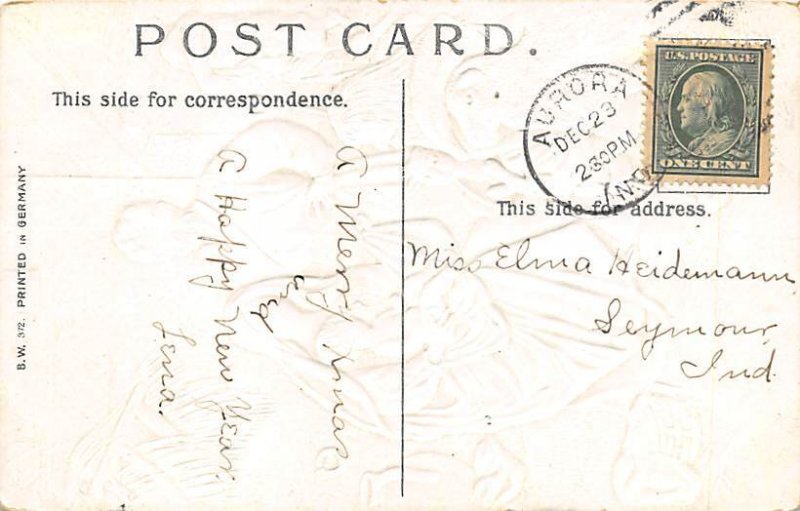 POST CARD.
This side for correspondence.
A Merry Xmas
and
A Happy New Year.
Lena.
B.W. 372. PRINTED IN GERMANY
AURORA
DEC 23
230PM
IND.
U.S. POSTAGE
ONE CENT
This side for address.
Miss Elma Heidemann
Seymour,
Ind.